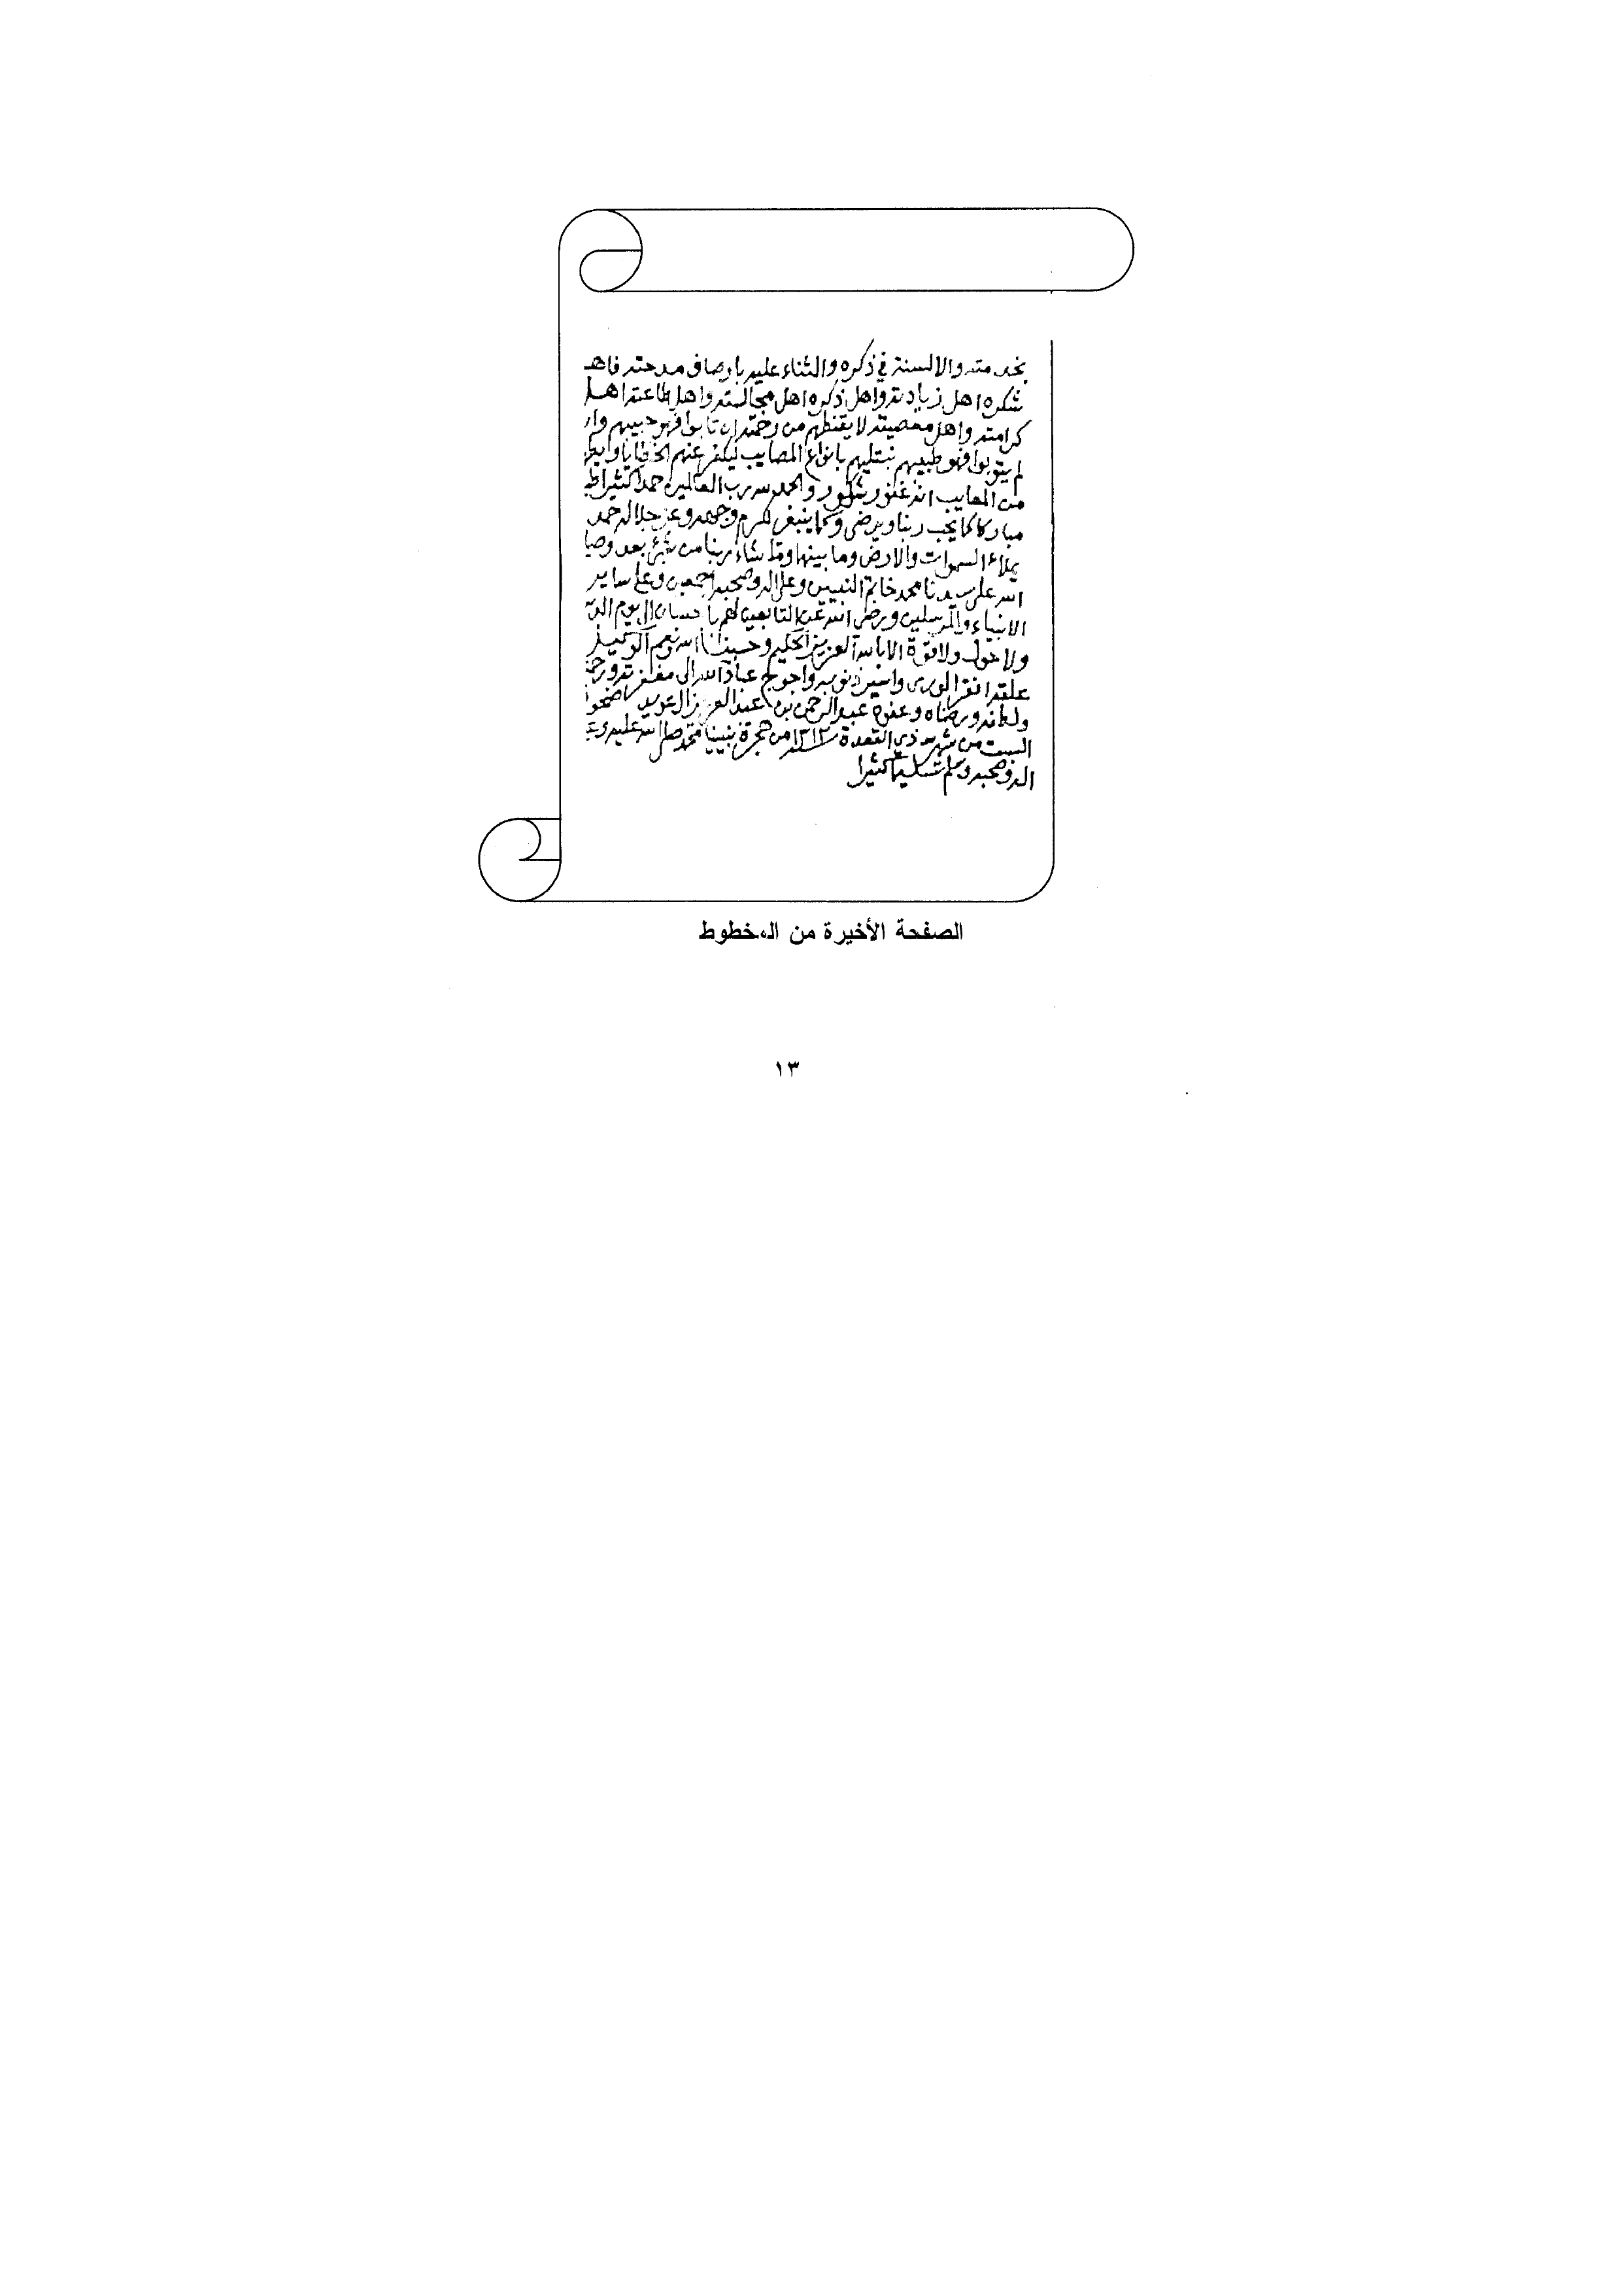 بخدمته والالسنة في ذكره والثناء عليه باوصاف مدحته فاهل
شكره اهل زيادته واهل ذكره اهل مجالسته واهل طاعته اهل
كرامته واهل معصيته لا يقنطهم من رحمته ان تابوا فهو حبيبهم وان
لم يتوبوا فهو طبيبهم يبتليهم بانواع المصايب ليكفر عنهم الخطايا
من المعايب انه غفور شكور والحمد لله رب العالمين حمدا كثيرا طيبا
مباركا كما يحب ربنا ويرضى وكما ينبغي لكرم وجهه وعز جلاله حمدا
يملاء السموات والارض وما بينهما وما شاء ربنا من شيئ بعد وصلى
الله على سيدنا محمد خاتم النبيين وعلى اله وصحبه اجمعين وعلى ساير
الانبياء والمرسلين ورضي الله عن التابعين لهم باحسان الى يوم الدين
ولا حول ولا قوة الا بالله العزيز الحكيم وحسبنا الله ونعم الوكيل
علقه افقر الورى واسير ذنوبه واحوج عباد الله الى مغفرته ورحمته
ورضاه وعفوه عبد الرحمن بن عبد العزيز ال عويد ضحوة
السبت من شهر ذي القعدة سنة ١٣١٣ من هجرة نبينا محمد صلى الله عليه وعلى
اله وصحبه وسلم تسليما كثيرا
الصفحة الأخيرة من المخطوط
١٣